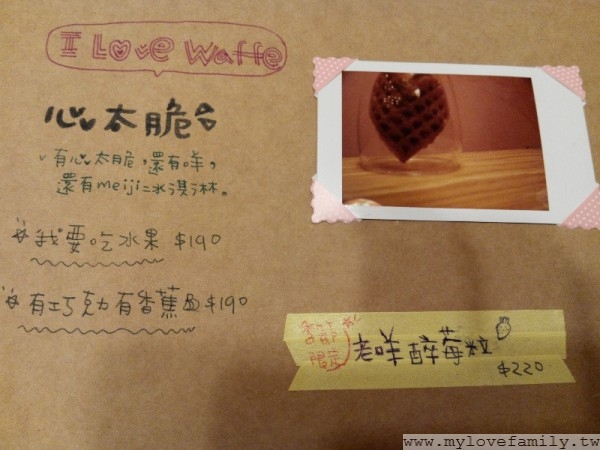 I Love Waffe
心太脆
有心太脆,還有咩,
還有meiji冰淇淋。
我要吃水果 $190
有巧克力有香蕉 $190
季節
限定
老咩醉莓粒
$220
www.mylovefamily.tw